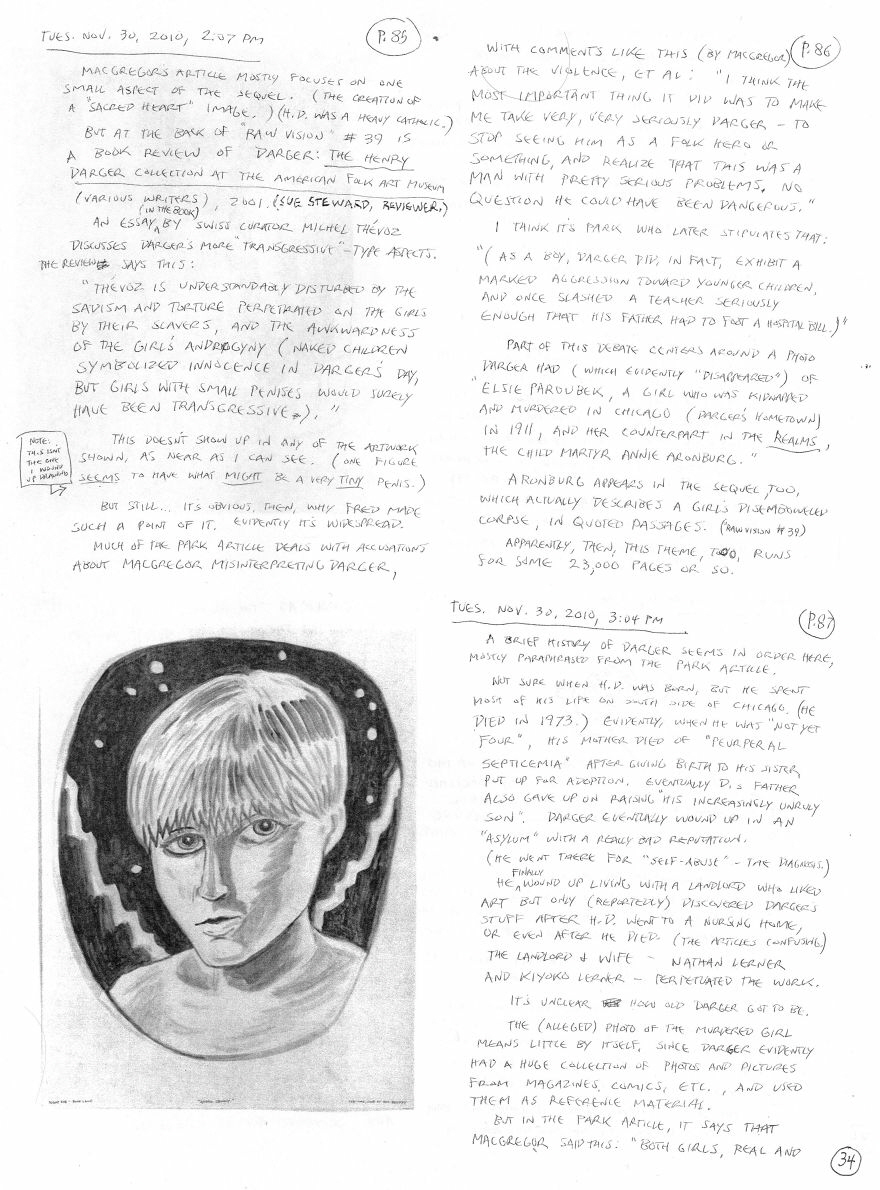 TUES. NOV. 30, 2010, 2:07 PM
P. 85
MACGREGOR'S ARTICLE MOSTLY FOCUSES ON ONE
SMALL ASPECT OF THE SEQUEL. (THE CREATION OF
A "SACRED HEART" IMAGE.) (H.D. WAS A HEAVY CATHOLIC.)
BUT AT THE BACK OF "RAW VISION" # 39 IS
A BOOK REVIEW OF "DARGER: THE HENRY
DARGER COLLECTION AT THE AMERICAN FOLK ART MUSEUM
(VARIOUS WRITERS), 2001. (SUE STEWARD, REVIEWER.)
(IN THE BOOK)
AN ESSAY, BY SWISS CURATOR MICHEL THÉVOZ
DISCUSSES DARGER'S MORE "TRANSGRESSIVE"-TYPE ASPECTS.
THE REVIEW SAYS THIS:
"THÉVOZ IS UNDERSTANDABLY DISTURBED BY THE
SADISM AND TORTURE PERPETRATED ON THE GIRLS
BY THEIR SLAVERS, AND THE AWKWARDNESS
OF THE GIRL'S ANDROGYNY (NAKED CHILDREN
SYMBOLIZED INNOCENCE IN DARGER'S DAY,
BUT GIRLS WITH SMALL PENISES WOULD SURELY
HAVE BEEN TRANSGRESSIVE)."
NOTE:
THIS ISN'T
THE ONE
I WOUND
UP DRAWING
THIS DOESN'T SHOW UP IN ANY OF THE ARTWORK
SHOWN, AS NEAR AS I CAN SEE. (ONE FIGURE
SEEMS TO HAVE WHAT MIGHT BE A VERY TINY PENIS.)
BUT STILL... IT'S OBVIOUS, THEN, WHY FRED MADE
SUCH A POINT OF IT. EVIDENTLY IT'S WIDESPREAD.
MUCH OF THE PARK ARTICLE DEALS WITH ACCUSATIONS
ABOUT MACGREGOR MISINTERPRETING DARGER,
P. 86
WITH COMMENTS LIKE THIS (BY MACGREGOR)
ABOUT THE VIOLENCE, ET AL: "I THINK THE
MOST IMPORTANT THING IT DID WAS TO MAKE
ME TAKE VERY, VERY SERIOUSLY DARGER - TO
STOP SEEING HIM AS A FOLK HERO OR
SOMETHING, AND REALIZE THAT THIS WAS A
MAN WITH PRETTY SERIOUS PROBLEMS. NO
QUESTION HE COULD HAVE BEEN DANGEROUS."
I THINK IT'S PARK WHO LATER STIPULATES THAT:
"(AS A BOY, DARGER DID, IN FACT, EXHIBIT A
MARKED AGGRESSION TOWARD YOUNGER CHILDREN,
AND ONCE SLASHED A TEACHER SERIOUSLY
ENOUGH THAT HIS FATHER HAD TO FOOT A HOSPITAL BILL.)"
PART OF THIS DEBATE CENTERS AROUND A PHOTO
DARGER HAD (WHICH EVIDENTLY "DISAPPEARED") OF
"ELSIE PAROUBEK, A GIRL WHO WAS KIDNAPPED
AND MURDERED IN CHICAGO (DARGER'S HOMETOWN)
IN 1911, AND HER COUNTERPART IN THE REALMS,
THE CHILD MARTYR ANNIE ARONBURG."
ARONBURG APPEARS IN THE SEQUEL, TOO,
WHICH ACTUALLY DESCRIBES A GIRL'S DISEMBOWELED
CORPSE, IN QUOTED PASSAGES. (RAW VISION # 39)
APPARENTLY, THEN, THIS THEME, TOO, RUNS
FOR SOME 23,000 PAGES OR SO.
TUES. NOV. 30, 2010, 3:04 PM
P. 87
A BRIEF HISTORY OF DARGER SEEMS IN ORDER HERE,
MOSTLY PARAPHRASED FROM THE PARK ARTICLE.
NOT SURE WHEN H.D. WAS BORN, BUT HE SPENT
MOST OF HIS LIFE ON SOUTH SIDE OF CHICAGO. (HE
DIED IN 1973.) EVIDENTLY, WHEN HE WAS "NOT YET
FOUR", HIS MOTHER DIED OF "PEURPERAL
SEPTICEMIA" AFTER GIVING BIRTH TO HIS SISTER,
PUT UP FOR ADOPTION. EVENTUALLY D.'S FATHER
ALSO GAVE UP ON RAISING "HIS INCREASINGLY UNRULY
SON". DARGER EVENTUALLY WOUND UP IN AN
"ASYLUM" WITH A REALLY BAD REPUTATION.
(HE WENT THERE FOR "SELF-ABUSE" - THE DIAGNOSIS.)
FINALLY
HE WOUND UP LIVING WITH A LANDLORD WHO LIKED
ART BUT ONLY (REPORTEDLY) DISCOVERED DARGER'S
STUFF AFTER H.D. WENT TO A NURSING HOME,
OR EVEN AFTER HE DIED. (THE ARTICLE'S CONFUSING)
THE LANDLORD & WIFE - NATHAN LERNER
AND KIYOKO LERNER - PERPETUATED THE WORK.
IT'S UNCLEAR HOW OLD DARGER GOT TO BE.
THE (ALLEGED) PHOTO OF THE MURDERED GIRL
MEANS LITTLE BY ITSELF, SINCE DARGER EVIDENTLY
HAD A HUGE COLLECTION OF PHOTOS AND PICTURES
FROM MAGAZINES, COMICS, ETC., AND USED
THEM AS REFERENCE MATERIAL.
BUT IN THE PARK ARTICLE, IT SAYS THAT
MACGREGOR SAID THIS: "BOTH GIRLS, REAL AND
34